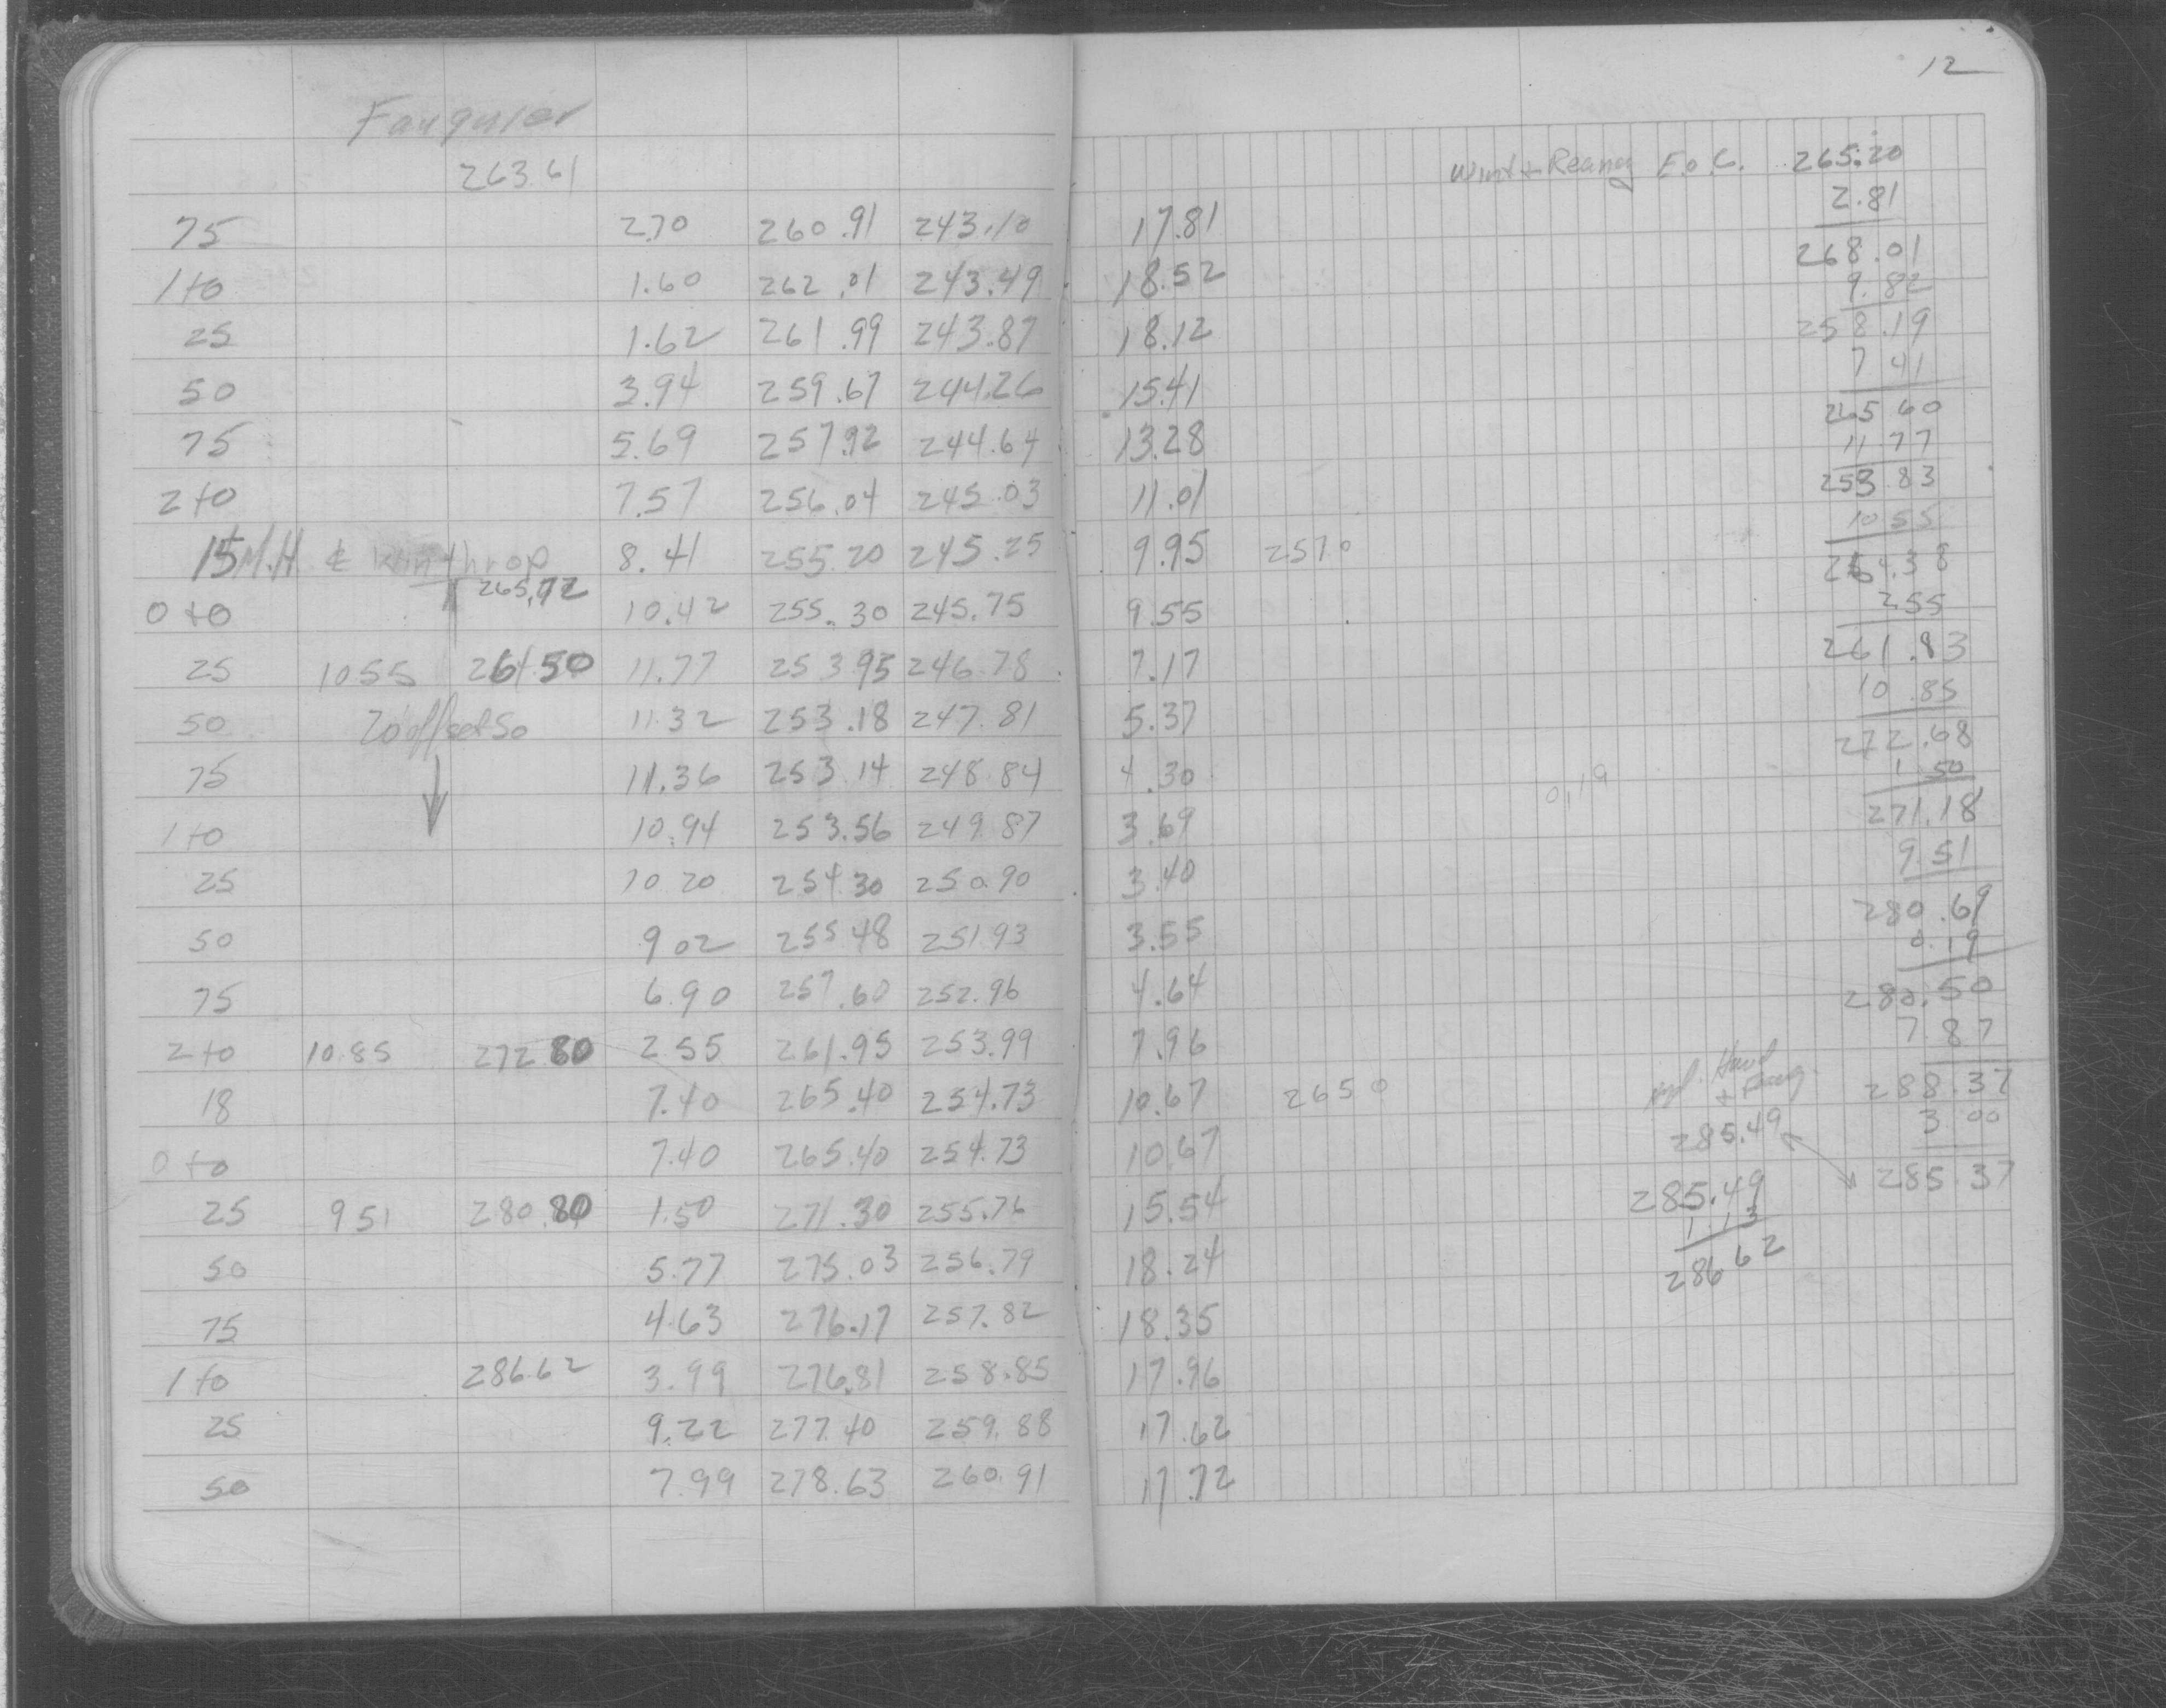 12
Fauquier
263 61
75 2.70 260.91 243.10 17.81
1+0 1.60 262.01 243.49 18.52
25 1.62 261.99 243.87 18.12
50 3.94 259.67 244.26 15.41
75 5.69 257.92 244.64 13.28
2+0 7.57 256.04 245.03 11.01
15 M.H ₵ Winthrop 8.41 255.20 245.25 9.95 2570
265.72
0+0 10.42 255.30 245.75 9.55
25 10 55 264.50 11.77 253.95 246.78 7.17
50 20 offset So 11.32 253.18 247.81 5.37
75 11.36 253.14 248.84 4.30
1+0 10.94 253.56 249 87 3.69
25 10 20 254.30 250.90 3.40
50 9 02 255 48 251 93 3.55
75 6.90 257.60 252.96 4.64
2+0 10.85 272 80 2.55 261.95 253.99 7.96
18 7.40 265.40 254.73 10.67 2650
0+0 7.40 265.40 254.73 10.67
25 9 51 280.80 1.50 271.30 255.76 15.54
50 5.77 275.03 256.79 18.24
75 4.63 276.17 257.82 18.35
1+0 286.62 3.99 276.81 258.85 17.96
25 9.22 277.40 259.88 17.62
50 7.99 278.63 260.91 17.72
Wint + Reaney E.o.C. 265.20
2.81
268.01
9.82
258.19
7 41
265 60
11 77
253 83
10 55
264.38
2 55
261.83
10.85
272.68
0.19
1 50
271.18
9.51
280.69
0.19
280.50
7.87
288.37
3 00
285.37
285.49
285.49
1.13
286 62